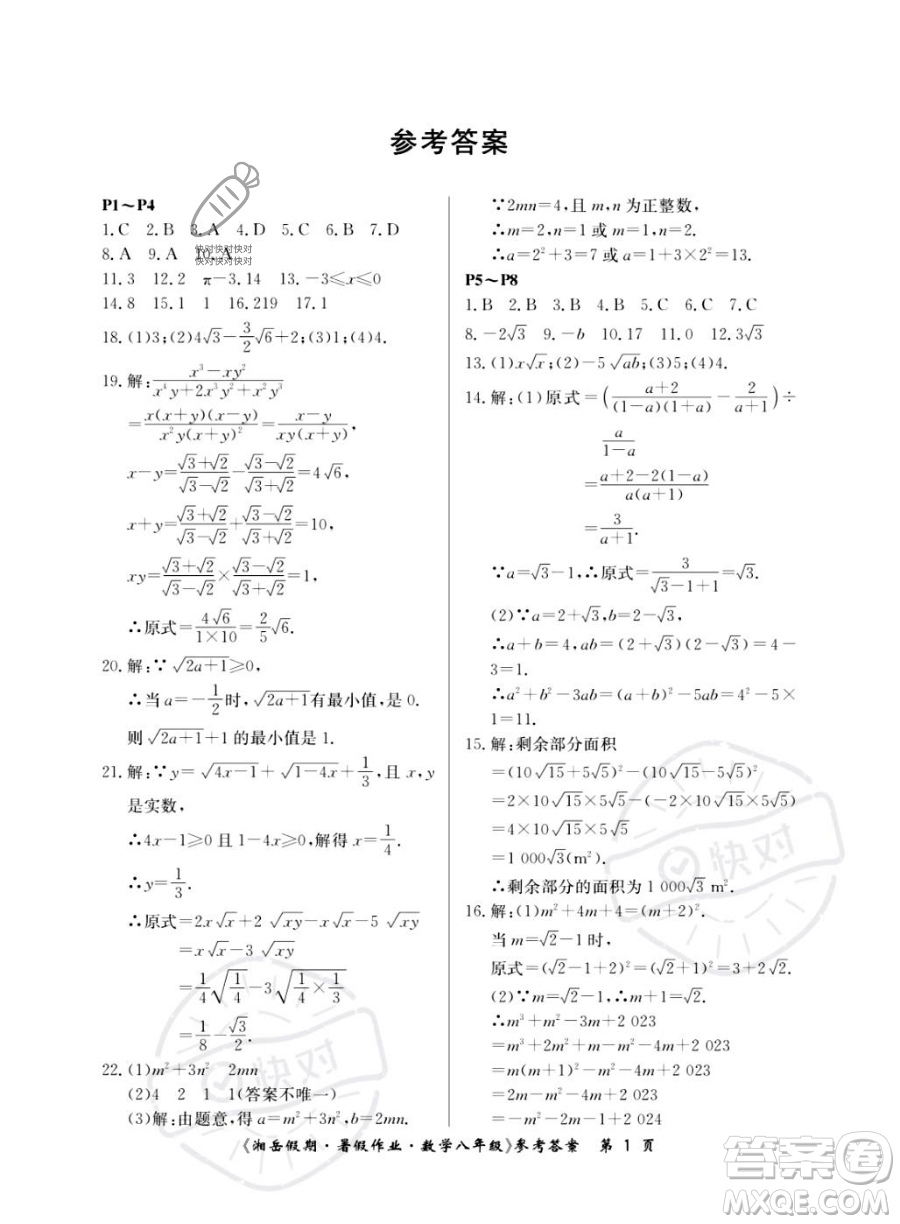 参考答案
P1～P4
1.C 2.B 3.A 4.D 5.C 6.B 7.D
8.A 9.A 10.A
快对快对快对
快对快对快对
11.3 12.2 π-3.14 13.-3≤x≤0
14.8 15.1 1 16.219 17.1
18.(1)3;(2)4√3-3/2√6+2;(3)1;(4)4.
19.解:(x³-xy²)/(x⁴y+2x³y²+x²y³)
=x(x+y)(x-y)/x²y(x+y)²=(x-y)/xy(x+y),
x-y=(√3+√2)/(√3-√2)-(√3-√2)/(√3+√2)=4√6,
x+y=(√3+√2)/(√3-√2)+(√3-√2)/(√3+√2)=10,
xy=(√3+√2)/(√3-√2)×(√3-√2)/(√3+√2)=1,
∴原式=4√6/(1×10)=2/5√6.
20.解:∵√(2a+1)≥0,
∴当a=-1/2时,√(2a+1)有最小值,是0.
则√(2a+1)+1的最小值是1.
21.解:∵y=√(4x-1)+√(1-4x)+1/3,且x,y
是实数,
∴4x-1≥0且1-4x≥0,解得x=1/4.
∴y=1/3.
∴原式=2x√x+2√(xy)-x√x-5√(xy)
=x√x-3√(xy)
=1/4√(1/4)-3√(1/4×1/3)
=1/8-√3/2.
22.(1)m²+3n² 2mn
(2)4 2 1 1(答案不唯一)
(3)解:由题意,得a=m²+3n²,b=2mn
∵2mn=4,且m,n为正整数,
∴m=2,n=1或m=1,n=2.
∴a=2²+3=7或a=1+3×2²=13.
P5～P8
1.B 2.B 3.B 4.C 5.B 6.C 7.C
8.-2√3 9.-b 10.17 11.0 12.3√3
13.(1)x√x;(2)-5√(ab);(3)5;(4)4.
14.解:(1)原式=((a+2)/(1-a)(1+a)-2/(a+1))÷
a/(1-a)
=(a+2-2(1-a))/a(a+1)
=3/(a+1).
∵a=√3-1,∴原式=3/(√3-1+1)=√3.
(2)∵a=2+√3,b=2-√3,
∴a+b=4,ab=(2+√3)(2-√3)=4-
3=1.
∴a²+b²-3ab=(a+b)²-5ab=4²-5×
1=11.
15.解:剩余部分面积
=(10√15+5√5)²-(10√15-5√5)²
=2×10√15×5√5-(-2×10√15×5√5)
=4×10√15×5√5
=1 000√3(m²).
∴剩余部分的面积为1 000√3 m².
16.解:(1)m²+4m+4=(m+2)².
当m=√2-1时,
原式=(√2-1+2)²=(√2+1)²=3+2√2.
(2)∵m=√2-1,∴m+1=√2.
∴m³+m²-3m+2 023
=m³+2m²+m-m²-4m+2 023
=m(m+1)²-m²-4m+2 023
=2m-m²-4m+2 023
=-m²-2m-1+2 024
《湘岳假期·暑假作业·数学八年级》参考答案 第1页
快对
快对
答案圈
MXQE.COM